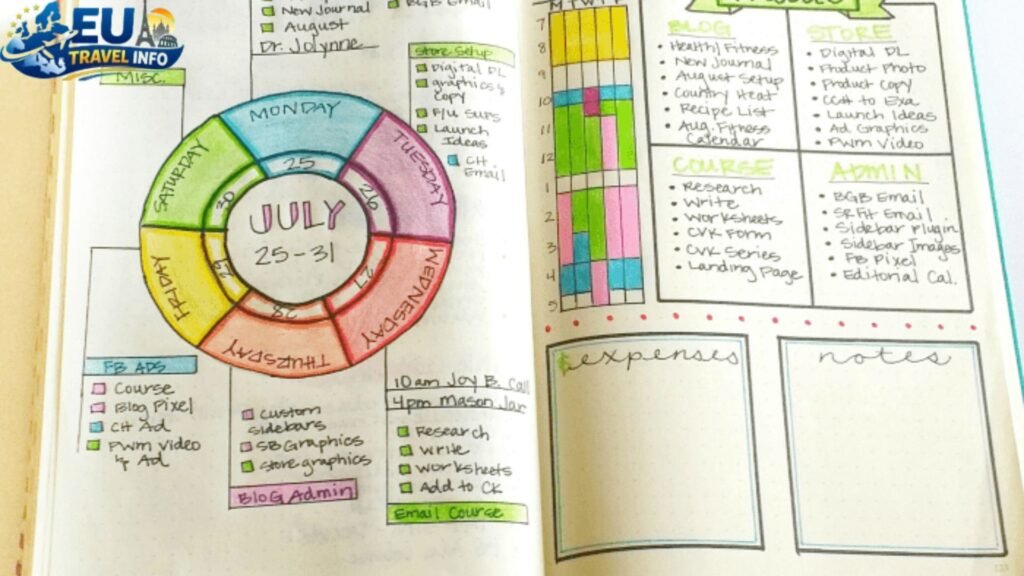 EU
TRAVEL INFO
New Journal
August
Dr. Jolynne
MISC.
BGB Email
Store Setup
Digital DL
graphics &
Copy
F/U Surs
Launch
Ideas
CH
Email
MONDAY
25
TUESDAY
26
WEDNESDAY
27
THURSDAY
28
FRIDAY
29
SATURDAY
30
JULY
25-31
FB ADS
Course
Blog Pixel
CH Ad
PWM Video
& Ad
Custom
sidebars
SB Graphics
Store graphics
Blog Admin
10am Joy B. Call
4pm Mason Jar
Research
Write
Worksheets
Add to CK
Email Course
M T W T F
7
8
9
10
11
12
1
2
3
4
5
BLOG
Health/Fitness
New Journal
August Setup
Country Heat
Recipe List
Aug. Fitness
Calendar
STORE
Digital DL
Product Photo
Product Copy
CCH to Exa
Launch Ideas
Ad Graphics
PWM Video
COURSE
Research
Write
Worksheets
CVK Form
CVK Series
Landing Page
ADMIN
BGB Email
SRFit Email
Sidebar Plugin
Sidebar Images
FB Pixel
Editorial Cal.
$ expenses
notes